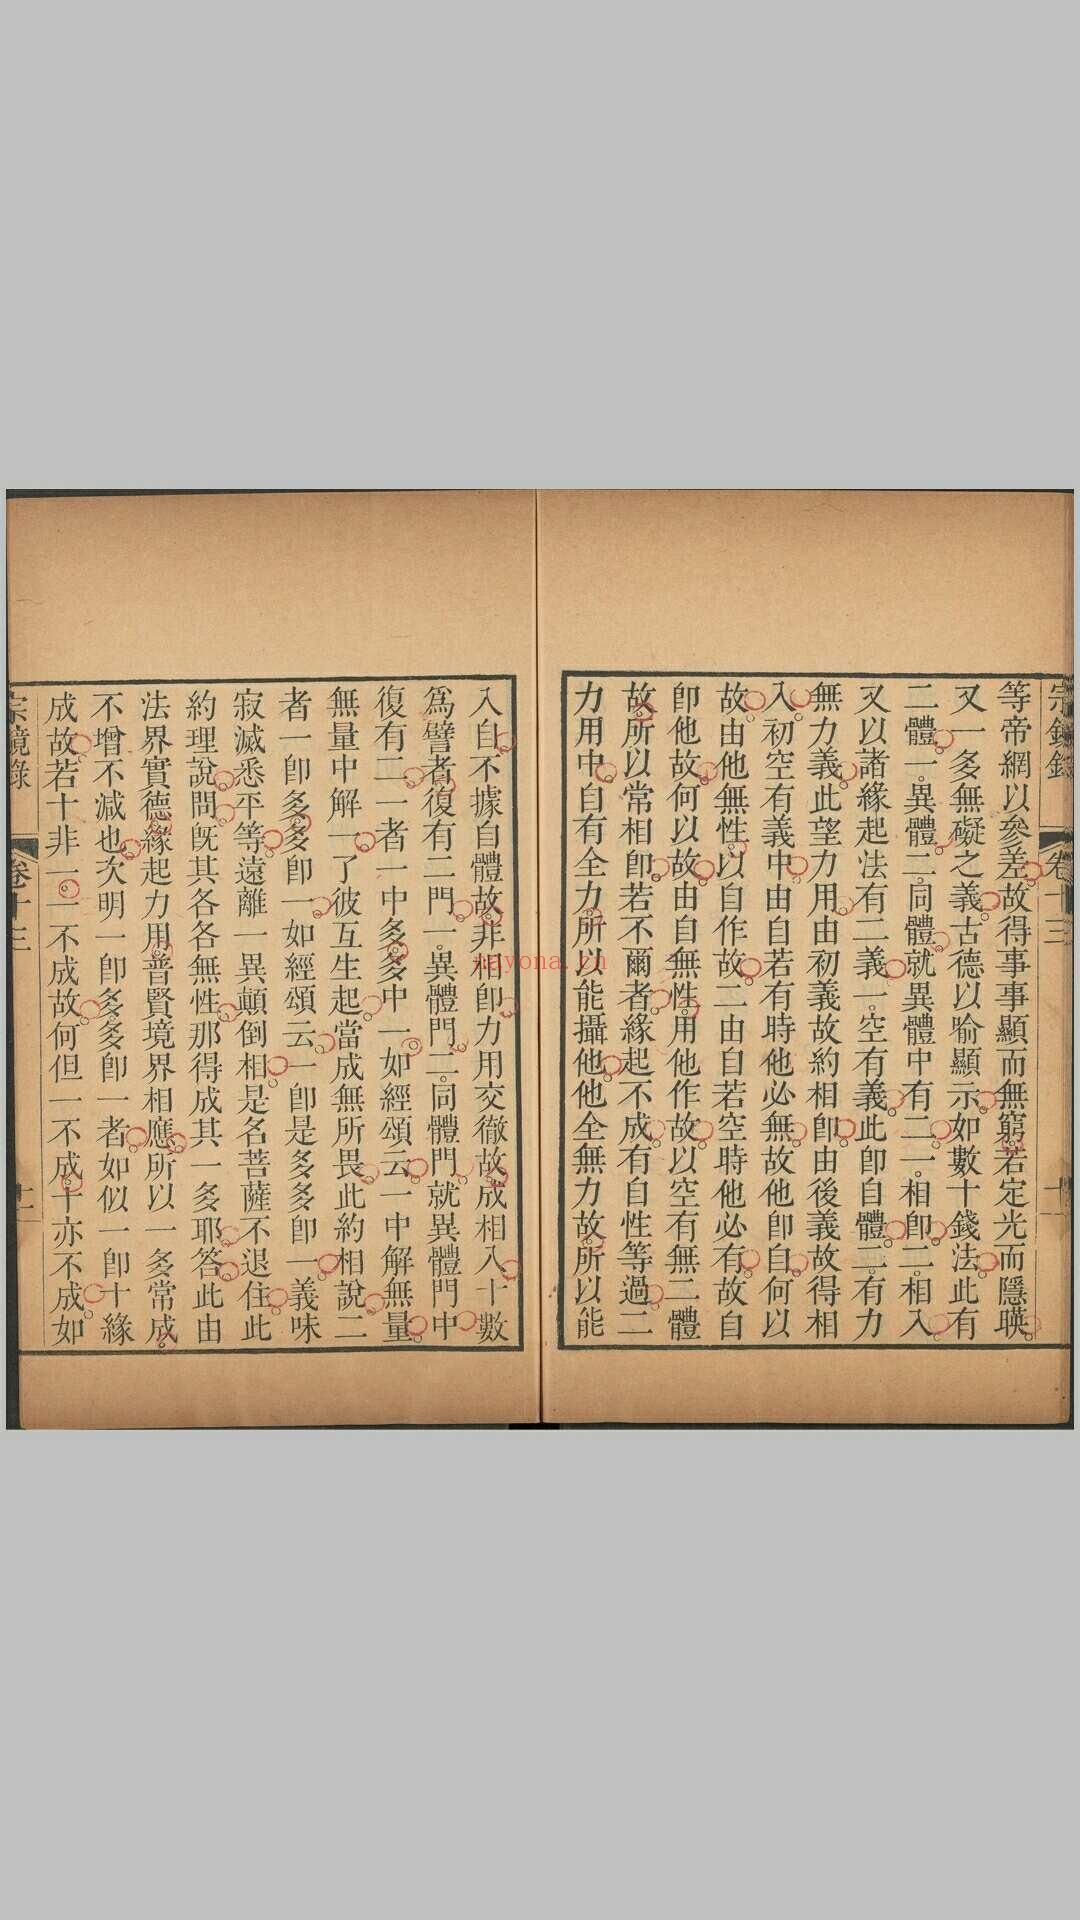 宗鏡錄 卷十三
等帝網以參差故得事事顯而無窮若定光而隱暎
又一多無礙之義古德以喻顯示如數十錢法此有
二體一異體二同體就異體中有二一相卽二相入
又以諸緣起法有二義一空有義此卽自體二有力
無力義此望力用由初義故約相卽由後義故得相
入初空有義中由自若有時他必無故他卽自何以
故由他無性以自作故二由自若空時他必有故自
卽他故何以故由自無性用他作故以空有無二體
故所以常相卽若不爾者緣起不成有自性等過二
力用中自有全力所以能攝他他全無力故所以能
入自不據自體故非相卽力用交徹故成相入十數
爲譬者復有二門一異體門二同體門就異體門中
復有二一者一中多多中一如經頌云一中解無量
無量中解一了彼互生起當成無所畏此約相說二
者一卽多多卽一如經頌云一卽是多多卽一義味
寂滅悉平等遠離一異顛倒相是名菩薩不退住此
約理說問旣其各各無性那得成其一多耶答此由
法界實德緣起力用普賢境界相應所以一多常成
不增不減也次明一卽多多卽一者如似一卽十緣
成故若十非一一不成故何但一不成十亦不成如
宗鏡錄 卷十三 十一
nayona.cn